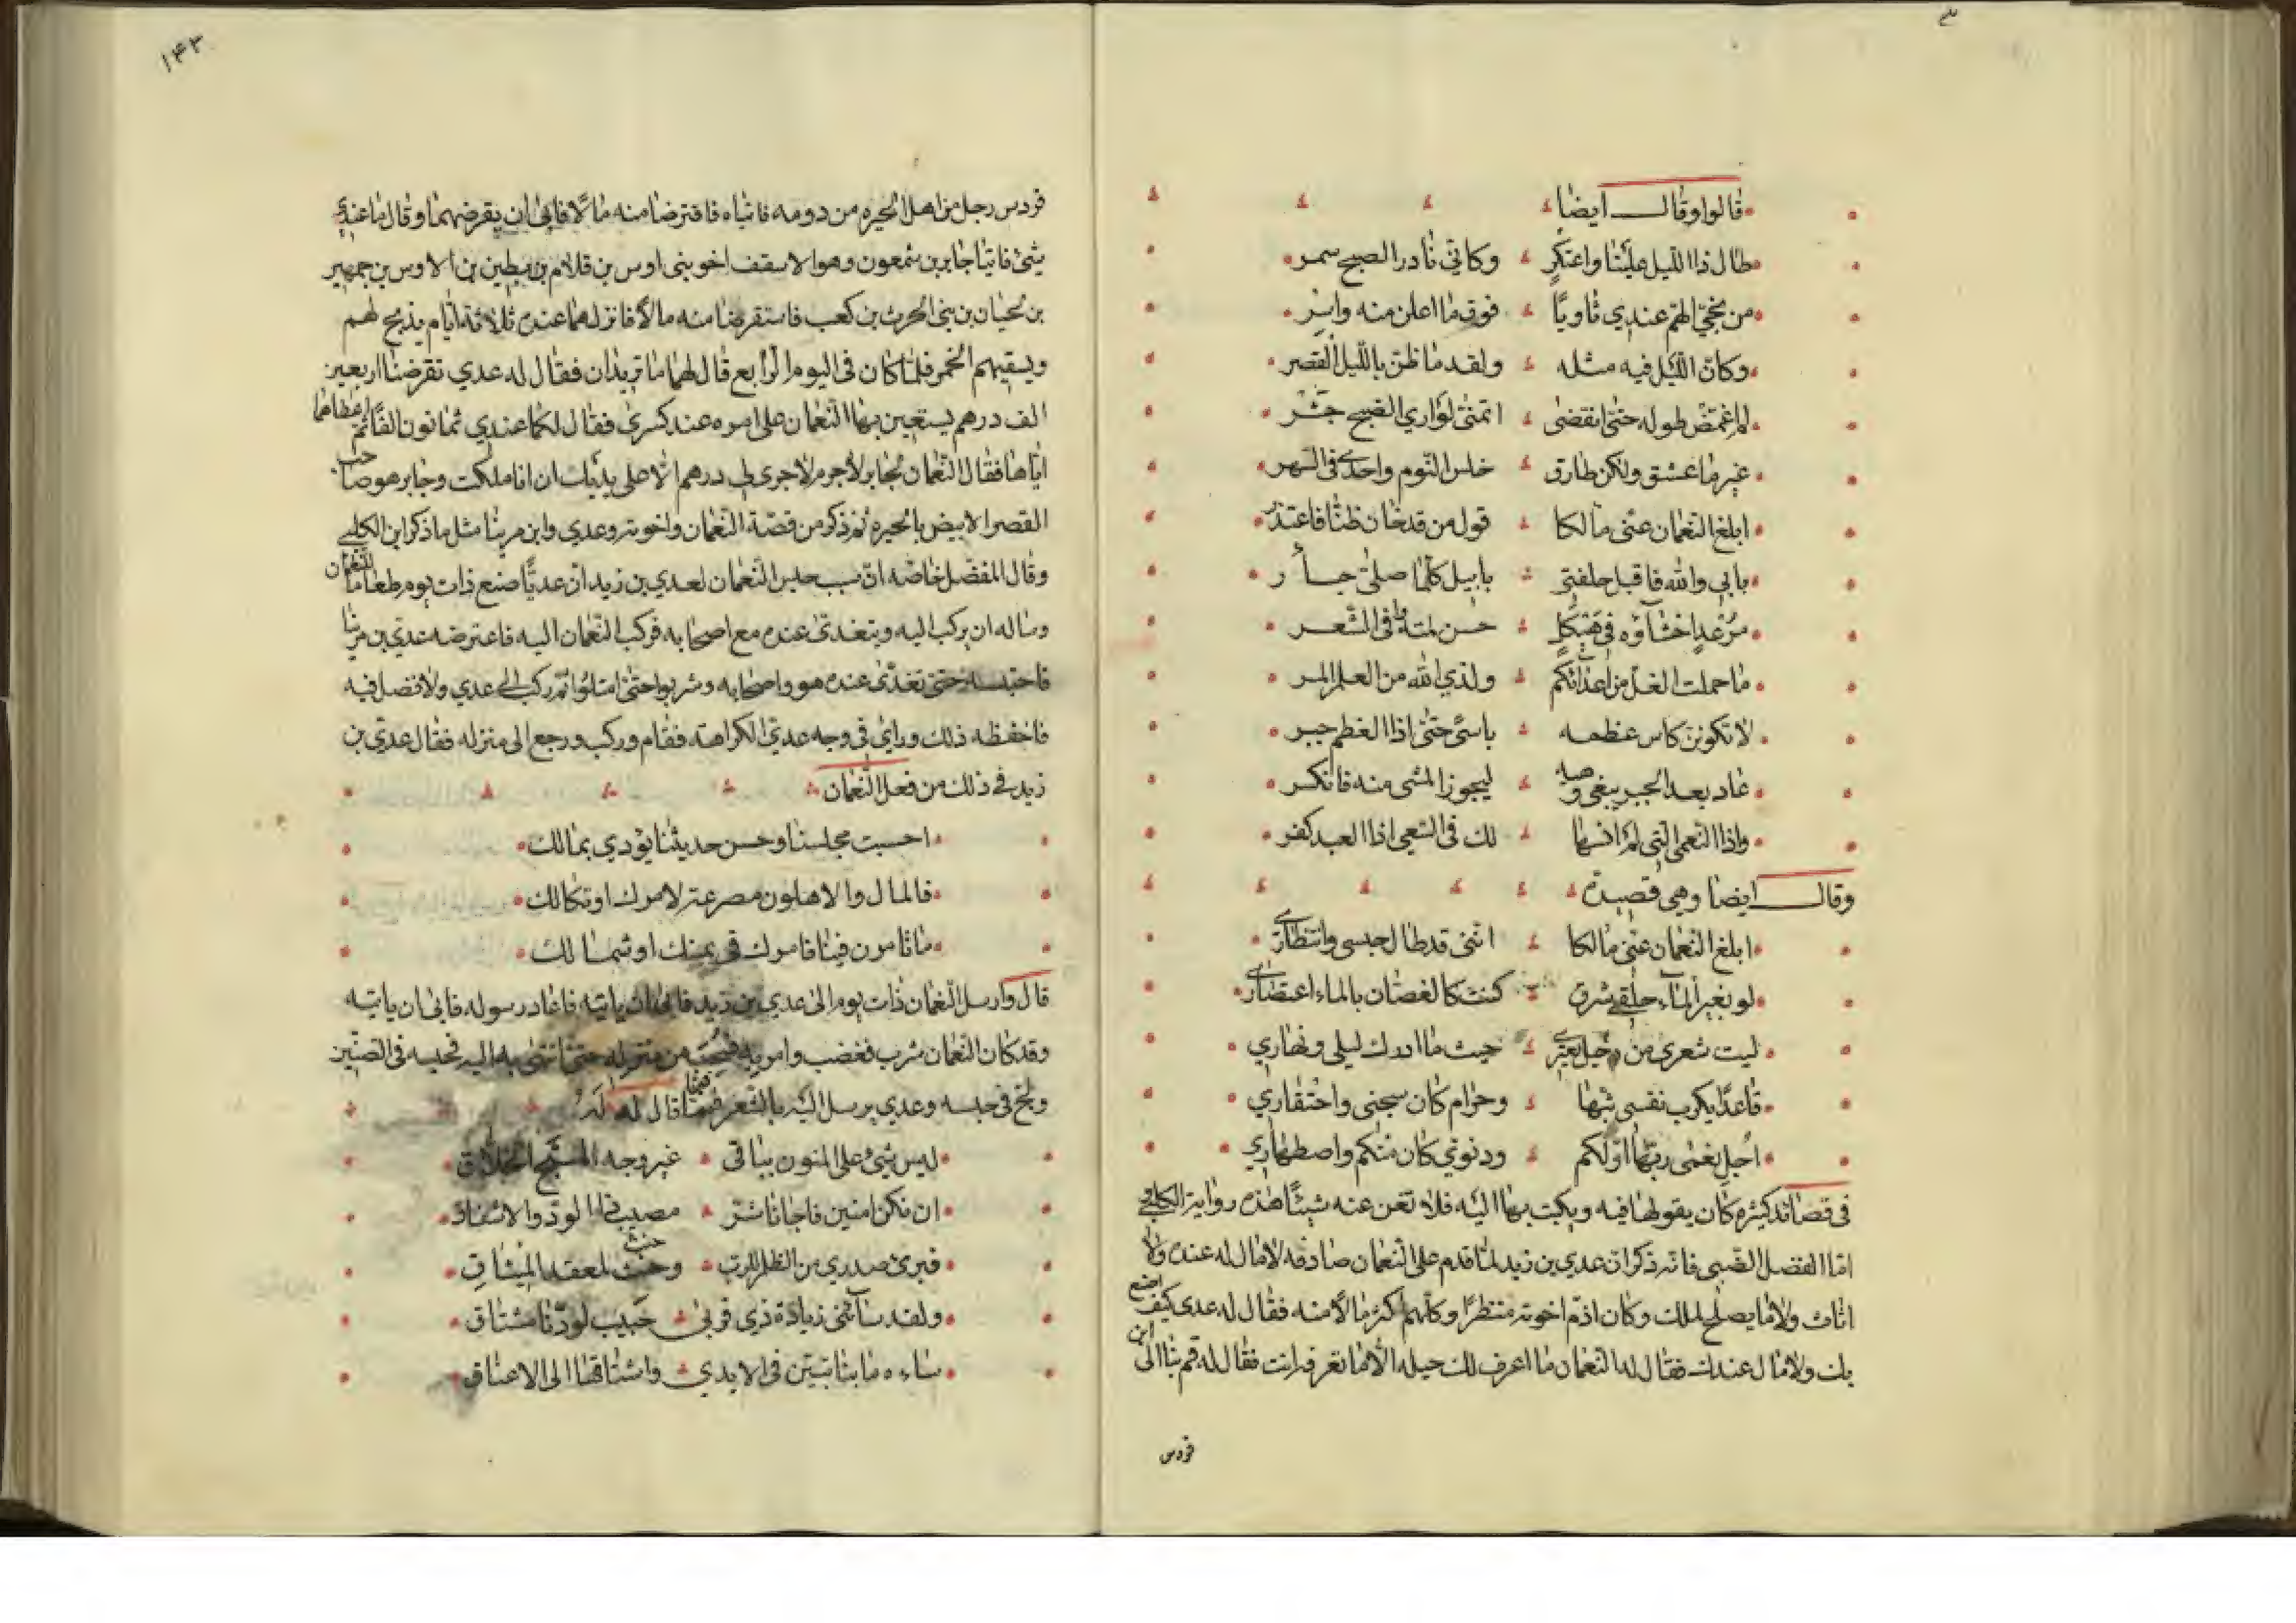 قالوا وقال ايضا
طال ذا الليل علينا واعتكر وكاني نادر الصبح سمر
من نجي الهم عندي ثاويا فوق ما اعلن منه واسر
وكان الليل فيه مثله ولقد ما ظن بالليل القصر
لم اغمض طوله حتى انقضى اتمنى لو اري الصبح جشر
غير ما عشق ولكن طارق خلس النوم واجدى في السهر
ابلغ النعمان عني مالكا قول من قد خان ظنا فاعتذر
بابي والله فاقبل حلفتي بابيل كلما صلى جأر
مرعد احشاؤه في هيكل حسن لمته وافي الشعر
ما حملت الغل من اعدائكم ولذي الله من العلم المسر
لا تكونن كاس عظمه باسى حتى اذا العظم جبر
عاد بعد الجبر يبغي وهيه ليجوز المشي منه فانكسر
واذا النعمى التي لم انسها لك في السعي اذا العبد كفر
وقال ايضا وهي قصيدة
ابلغ النعمان عني مالكا انني قد طال حبسي وانتظاري
لو بغير الماء حلقي شرق كنت كالغصان بالماء اعتصاري
ليت شعري من دخيل يعتري حيث ما ادرك ليلي ونهاري
قاعدا يكرب نفسي بثها وحرام كان سجني واحتقاري
اجل نعمى ربها اولكم ودنوي كان منكم واصطهاري
في قصائد كثيره كان يقولها فيه ويكتب بها اليه فلا تغن عنه شيئا هذه رواية الكلبي
اما المفضل الضبي فانه ذكر ان عدي بن زيد لما قدم على النعمان صادفه لا مال له عنده ولا
اثاث ولا ما يصلح لملك وكان اذم اخوته منظرا وكلهم اكثر مالا منه فقال له عدي كيف اصنع
بك ولا مال عندك فقال له النعمان ما اعرف لك حيله الا ما تعرفه انت فقال له قم بنا الى ابن
قردس
١٤٣
قردس رجل من اهل الحيره من دومه فاتياه فاقترضا منه مالا فابى ان يقرضهما وقال ما عندي
شئ فاتيا جابر بن شمعون وهو الاسقف اخو بني اوس بن قلام بن بطين بن الاوس بن جمهير
بن لحيان بن بني الحرث بن كعب فاستقرضا منه مالا فانزلهما عنده ثلاثة ايام يذبح لهم
ويسقيهم الخمر فلما كان في اليوم الرابع قال لهما ما تريدان فقال له عدي تقرضنا اربعين
الف درهم يستعين بها النعمان على امره عند كسرى فقال لكما عندي ثمانون الفا ثم اعطاهما
اياها فقال النعمان لجابر لا جرم لا جرى لي درهم الا على يديك ان انا ملكت وجابر هو صاحب
القصر الابيض بالحيره ثم ذكر من قصة النعمان واخوته وعدي وابن مرينا مثل ما ذكر ابن الكلبي
وقال المفضل خاصه ان سبب حبس النعمان لعدي بن زيد ان عديا صنع ذات يوم طعاما للنعمان
وساله ان يركب اليه ويتغدى عنده مع اصحابه فركب النعمان اليه فاعترضه عدي بن مرينا
فاحتبسه حتى تغدى عنده هو واصحابه وشربوا حتى امتلئوا ثم ركب الى عدي ولا فضل فيه
فاحفظه ذلك وراى في وجه عدي الكراهة فقام وركب ورجع الى منزله فقال عدي بن
زيد في ذلك من فعل النعمان
احسبت مجلسنا وحسن حديثنا يؤدي بمالك
فالمال والاهلون مصرعة لامرك او نكالك
ما تامرن فينا فامرك في يمينك او شمالك
قال وارسل النعمان ذات يوم الى عدي بن زيد فابى ان ياتيه فاعاد رسوله فابى ان ياتيه
وقد كان النعمان شرب فغضب وامر به فسحب من منزله حتى انتهى به اليه فحبسه في الصنين
ولج في حبسه وعدي يرسل اليه بالشعر فمما قال له
ليس شئ على المنون بباقي غير وجه المسبح الخلاق
ان نكن امنين فاجانا شر مصيب ذا الود والاشفاق
فبرئ صدري من الظلم للرب وحنث لمعقد الميثاق
ولقد سائني زيادة ذي قربى حبيب لودنا مشتاق
ساءه ما بنا تبين في الايدي واشناقها الى الاعناق